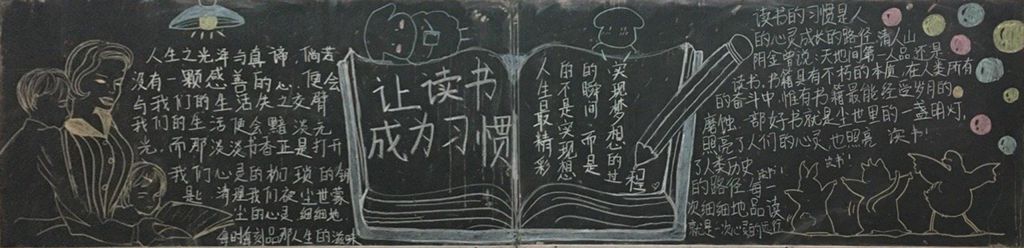 人生之光泽与真谛，倘若
没有一颗感善的心，便会
与我们的生活失之交臂
我们的生活便会黯淡无
光，而那淡淡书香正是打开
我们心灵的枷锁的钥
是 清理我们被尘世蒙
尘的心灵 细细地
每时每刻品那人生的滋味
让读书
成为习惯
人生最精彩
的不是实现梦想
的瞬间，而是
实现梦想的过程
读书的习惯是人
的心灵成长的路径 清人山
阴金曾说：天地间第一人品还是
读书，书籍具有不朽的本质，在人类所有
的奋斗中，惟有书籍最能经受岁月的
磨蚀 一部好书就是尘世里的一盏明灯，
照亮了人们的心灵 也照亮
了人类历史
的路径 每一
次细细地品读
就是一次心灵的
读书！
读书！
读书！